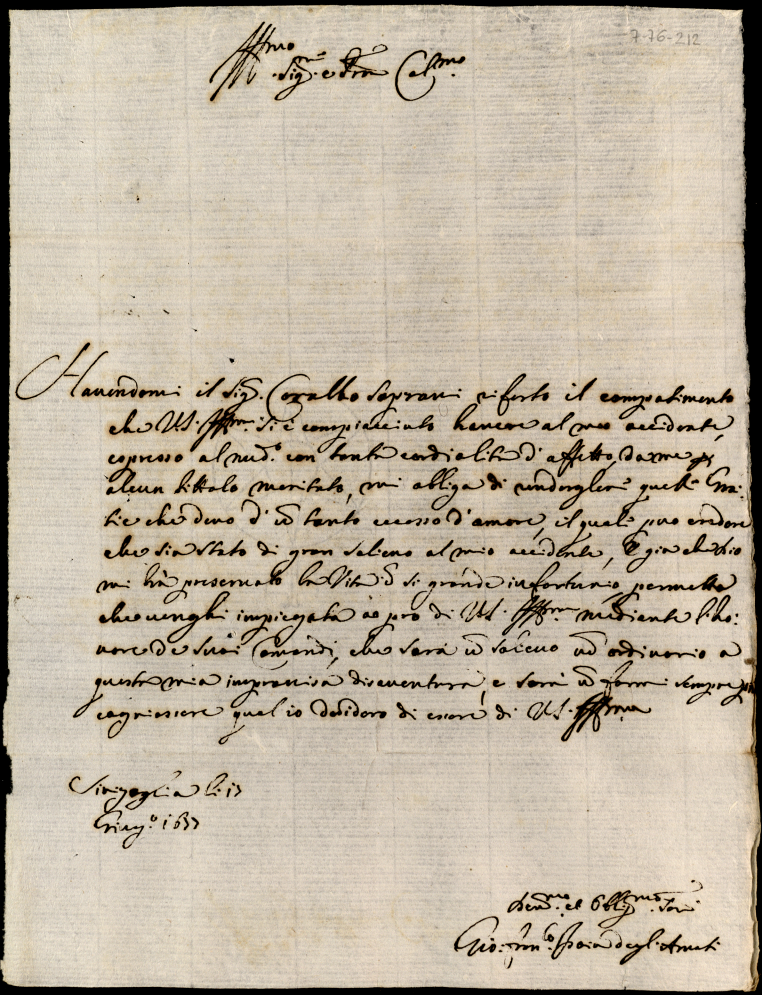 7-76-212
Ill.mo
Sig.re e P̄ron Col.mo
Havendomi il Sig. Coralbo Soprani riferto il compatimento
che VS. Ill.ma si è compiacciuto havere al mio accidente,
espresso al med.o con tanta cordialità d'affetto, da me p
alcun tittolo meritato, mi obliga di renderglene quelle Gra:
tie che devo d'ū tanto eccesso d'amore, il quale può credere
che sia stato di gran solievo al mio accidente, E già che Dio
mi hà preservato la Vita ī si grande infortunio, permetta
che venghi impiegata à pro di VS. Ill.ma mediante l'ho:
nore de suoi Comandi, che sarà ū solievo nō ordinario a
questa mia improvisa disaventura, e sarà ū farmi sempre più
cognoscere qual io desidero di essere di VS. Ill.ma
Sinigaglia li 17
Giug.o 1657
Dev.mo et Obblig.mo Ser.
Gio: Fran.co degli Amati